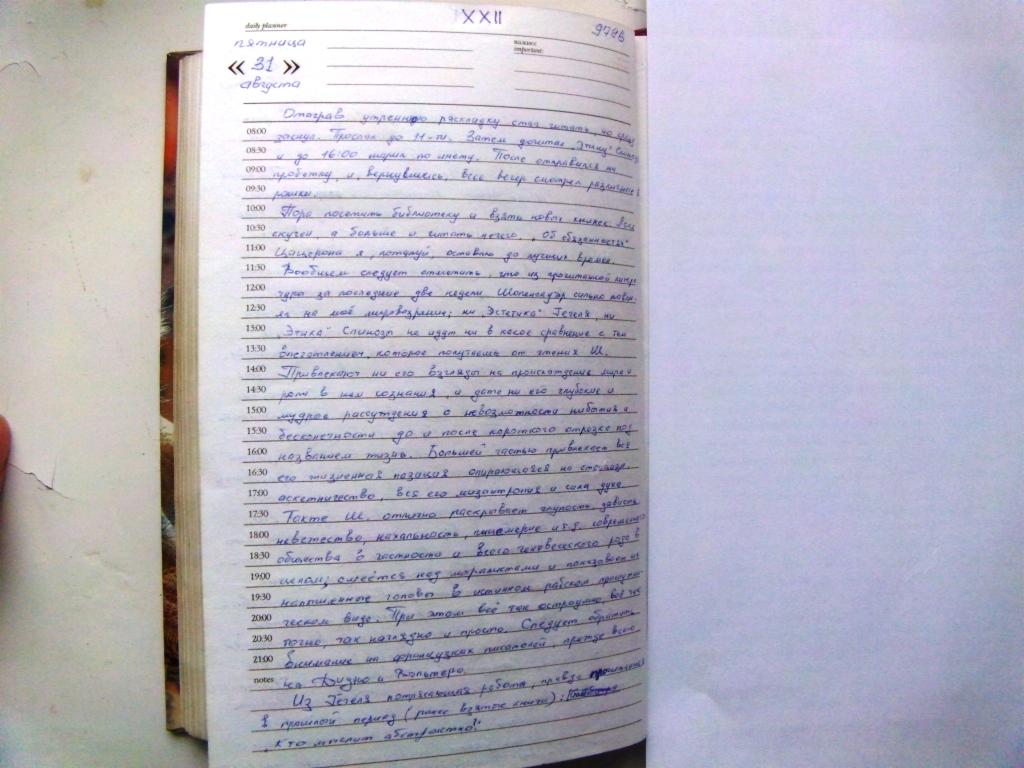 XXII
daily planner
979В
пятница
важное
important:
« 31 »
августа
Отыграв утреннюю раскладку стал читать, но
08:00
заснул. Проспал до 11-ти. Затем дочитал „Этику"
08:30
и до 16:00 по инету. После отправился на
09:00
пробежку, и, вернувшись, весь вечер смотрел
09:30
10:00
Пора посетить библиотеку и взять новых книжек.
10:30
скучен, а больше и читать нечего. „Об обязанностях"
11:00
Цицерона я, пожалуй, оставлю до лучших времен.
11:30
Вообщем следует отметить, что из прочитанной
12:00
туры за последние две недели Шопенгауэр сильно
12:30
на моё мировоззрение; ни „Эстетика" Гегеля, ни
13:00
„Этика" Спинозы не идут ни в какое сравнение с тем
13:30
впечатлением, которое получаешь от чтения Ш.
14:00
Привлекают ни его взгляды на происхождение мира и
14:30
роли в нем сознания, и даже ни его глубокие и
15:00
мудрые рассуждения о невозможности небытия и
15:30
бесконечности до и после короткого отрезка под
16:00
названием жизнь. Большей частью привлекает всё
16:30
его жизненная позиция опирающаяся на
17:00
аскетничество, вся его мизантропия и сила духа.
17:30
Также Ш. отлично раскрывает глупость, зависть,
18:00
невежество, нахальность, лицемерие и т.д. современного
18:30
общества в частности и всего человеческого рода в
19:00
целом; смеётся над и показывает их
19:30
напыщенные головы в истинном рабском
20:00
ческом виде. При этом всё так остроумно, всё так
20:30
точно, так наглядно и просто. Следует обратить
21:00
внимание на французских писателей, прежде всего
notes
на Дидро и Вольтера.
Из Гегеля потрясающая работа, правда прочитанная
в прошлый период (ранее взятые книги):
„Кто мыслит абстрактно?"